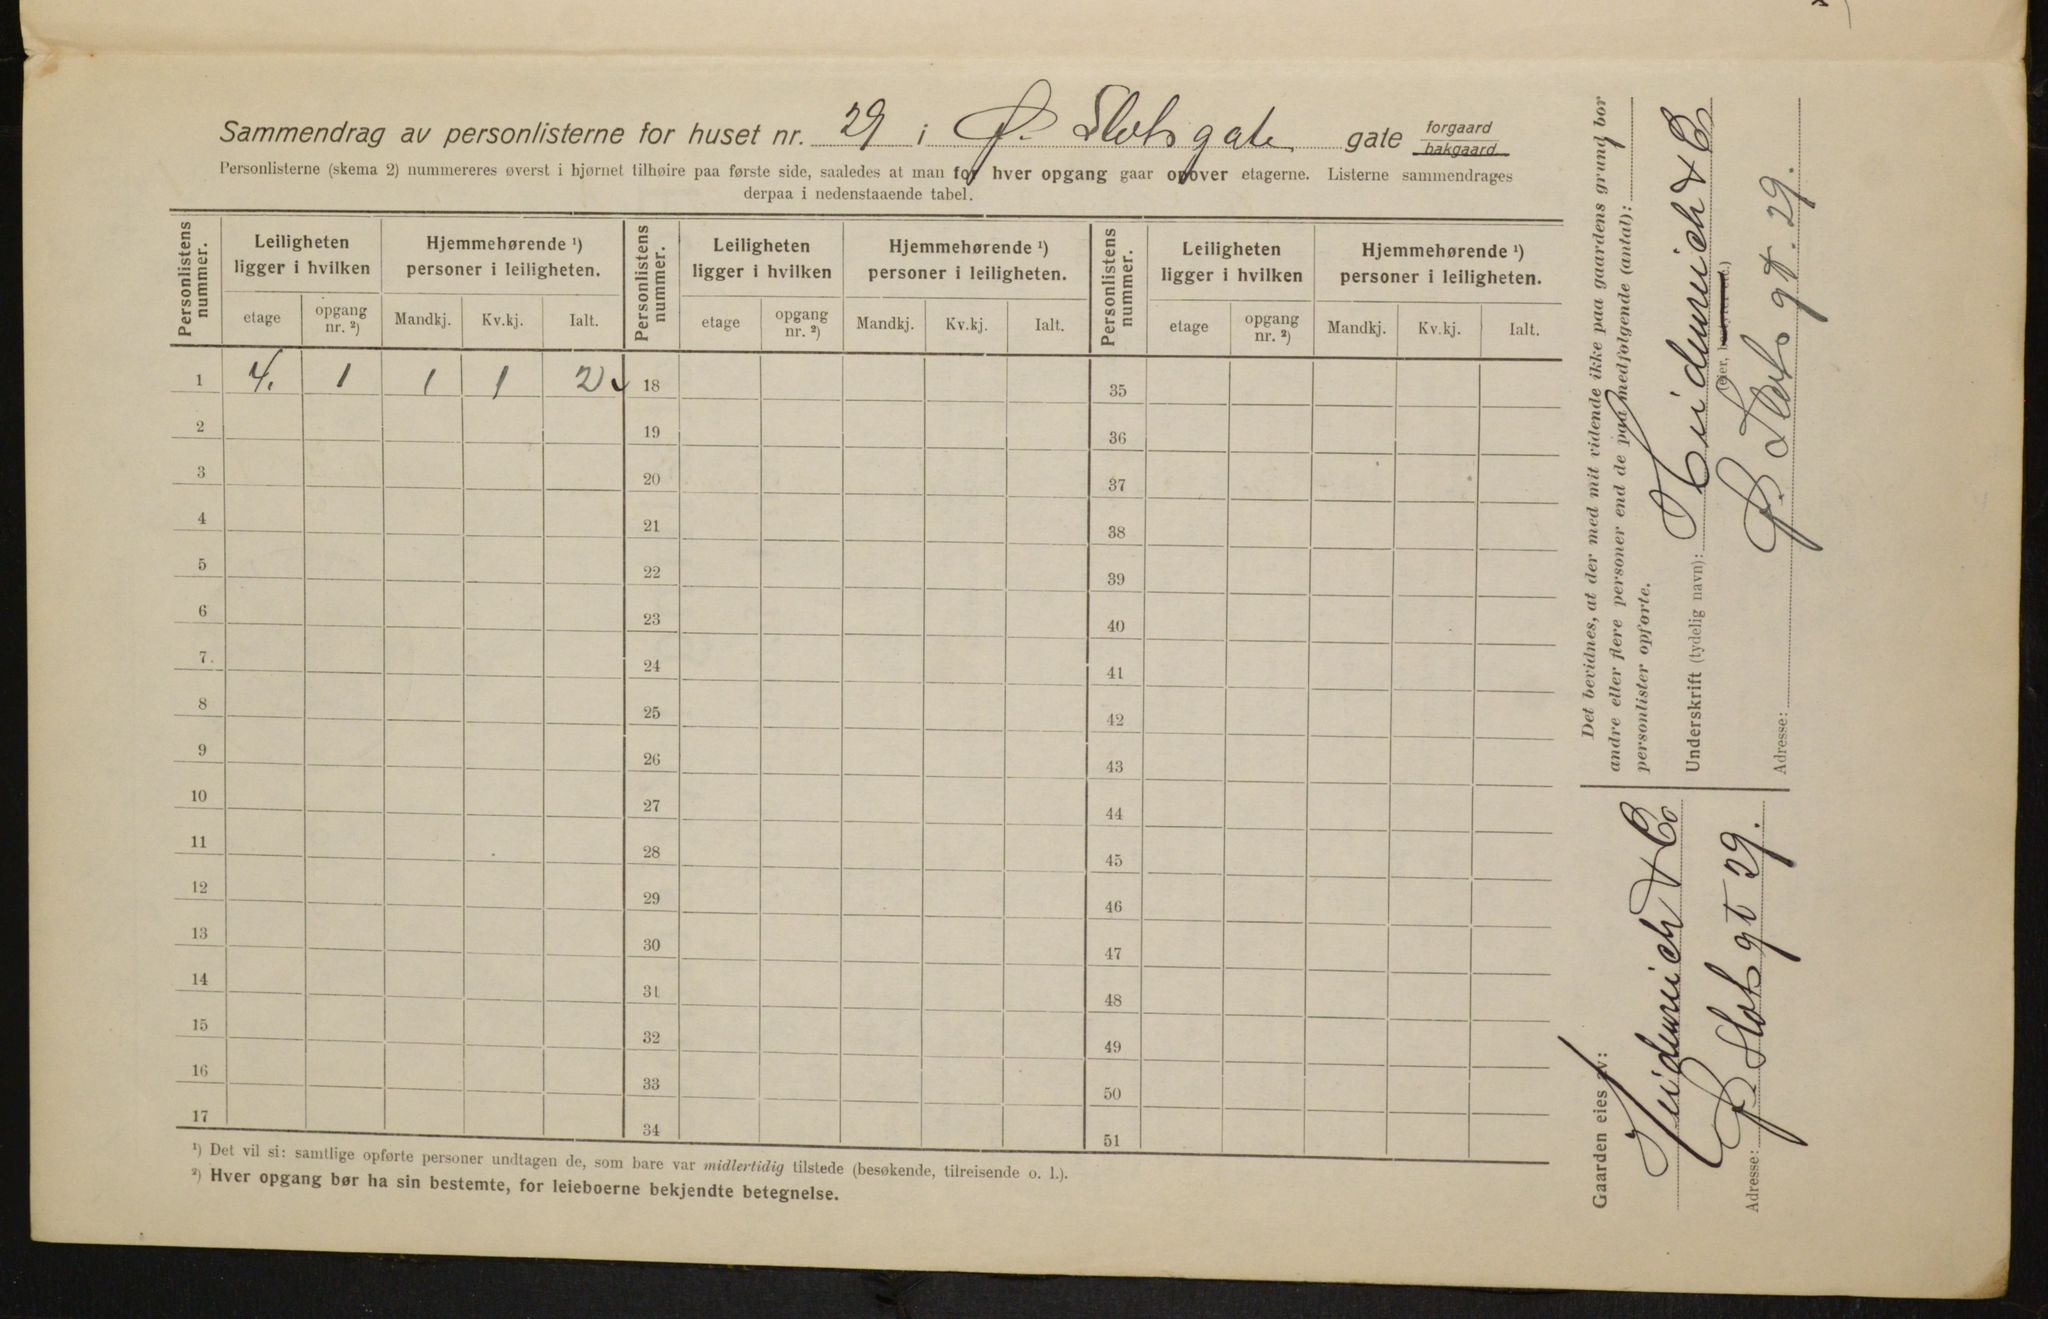 Sammendrag av personlisterne for huset nr. 29 i Ø. Slotsgate gate forgaard bakgaard
Personlisterne (skema 2) nummereres øverst i hjørnet tilhøire paa første side, saaledes at man for hver opgang gaar opover etagerne. Listerne sammendrages
derpaa i nedenstaaende tabel.
Personlistens nummer. Leiligheten ligger i hvilken Hjemmehørende ¹) personer i leiligheten. Personlistens nummer. Leiligheten ligger i hvilken Hjemmehørende ¹) personer i leiligheten. Personlistens nummer. Leiligheten ligger i hvilken Hjemmehørende ¹) personer i leiligheten.
etage opgang nr. ²) Mandkj. Kv.kj. Ialt. etage opgang nr. ²) Mandkj. Kv.kj. Ialt. etage opgang nr. ²) Mandkj. Kv.kj. Ialt.
1 4. 1 1 1 2 18 35
2 19 36
3 20 37
4 21 38
5 22 39
6 23 40
7. 24 41
8 25 42
9 26 43
10 27 44
11 28 45
12 29 46
13 30 47
14 31 48
15 32 49
16 33 50
17 34 51
¹) Det vil si: samtlige opførte personer undtagen de, som bare var midlertidig tilstede (besøkende, tilreisende o. l.).
²) Hver opgang bør ha sin bestemte, for leieboerne bekjendte betegnelse.
Det bevidnes, at der med mit vidende ikke paa gaardens grund bor
andre eller flere personer end de paa medfølgende (antal):
personlister opførte.
Underskrift (tydelig navn): Heidenreich & Co
(eier, bestyrer etc.)
Adresse: Ø. Slots gt. 29.
Gaarden eies av:
Heidenreich & Co
Adresse: Ø. Slots gt 29.